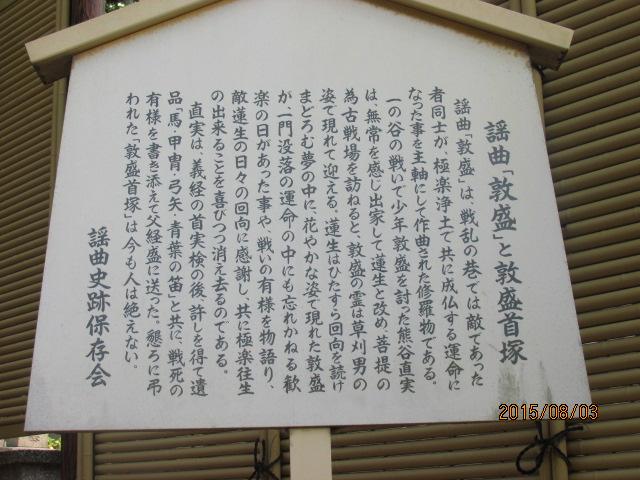 謡曲「敦盛」と敦盛首塚
謡曲「敦盛」は、戦乱の巷では敵であった
者同士が、極楽浄土で共に成仏する運命に
なった事を主軸にして作曲された修羅物である。
一の谷の戦いで少年敦盛を討った熊谷直実
は、無常を感じ出家して蓮生と改め、菩提の
為古戦場を訪ねると、敦盛の霊は草刈男の
姿で現れて迎える。蓮生はひたすら回向を続け
まどろむ夢の中に、花やかな姿で現れた敦盛
が、一門没落の運命の中にも忘れかねる歓
楽の日があった事や、戦いの有様を物語り、
敵蓮生の日々の回向に感謝し、共に極楽往生
の出来ることを喜びつつ消え去るのである。
直実は、義経の首実検の後、許しを得て遺
品「馬・甲冑・弓矢・青葉の笛」と共に、戦死の
有様を書き添えて父経盛に送った。懇ろに弔
われた「敦盛首塚」は今も人は絶えない。
謡曲史跡保存会
2015/08/03